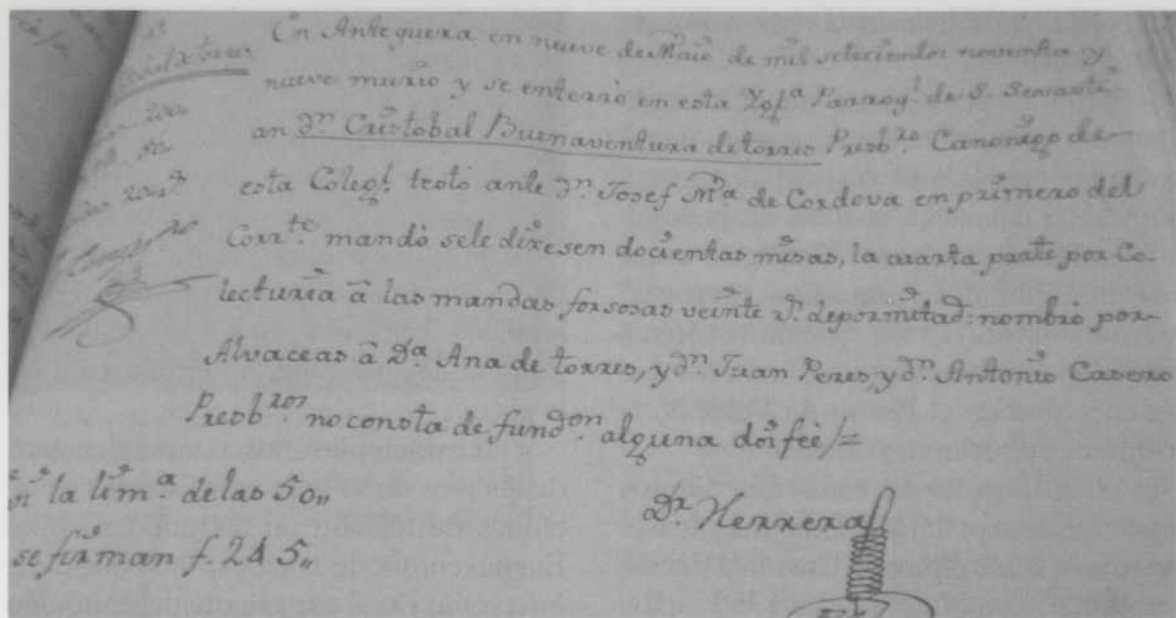 En Antequera en nueve de Maio de mil setecientos noventa y
nueve murio y se enterró en esta Yglª Parroql de S. Sevasti
an Dn Cristobal Buenaventura de torres Presbro Canonigo de
esta Colegl. testó ante Dn Josef Mª de Cordova en primero del
Corrte mandó se le dixesen docientas misas, la cuarta parte por Co-
lecturia â las mandas forsosas veinte rs. de por mitad: nombró por
Alvaceas â Dª Ana de torres, y Dn Juan Peres, y Dn Antonio Casero
Presbros no consta de fundon alguna doi fee /=
Dr Herrera
la limª de las 50,,
se firman f. 245,,
200
50